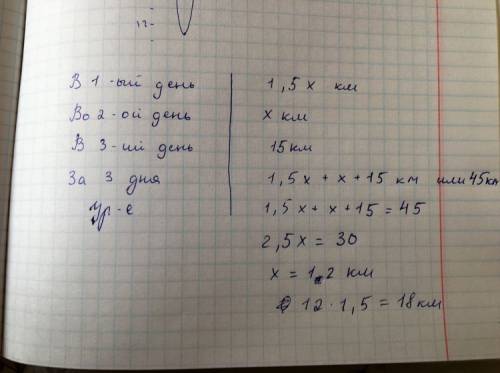 12-
В 1-ый день 1,5 x км
Во 2-ой день x км
В 3-ий день 15 км
За 3 дня 1,5 x + x + 15 км или 45 км
Ур-е 1,5 x + x + 15 = 45
2,5 x = 30
x = 12 км
12 · 1,5 = 18 км